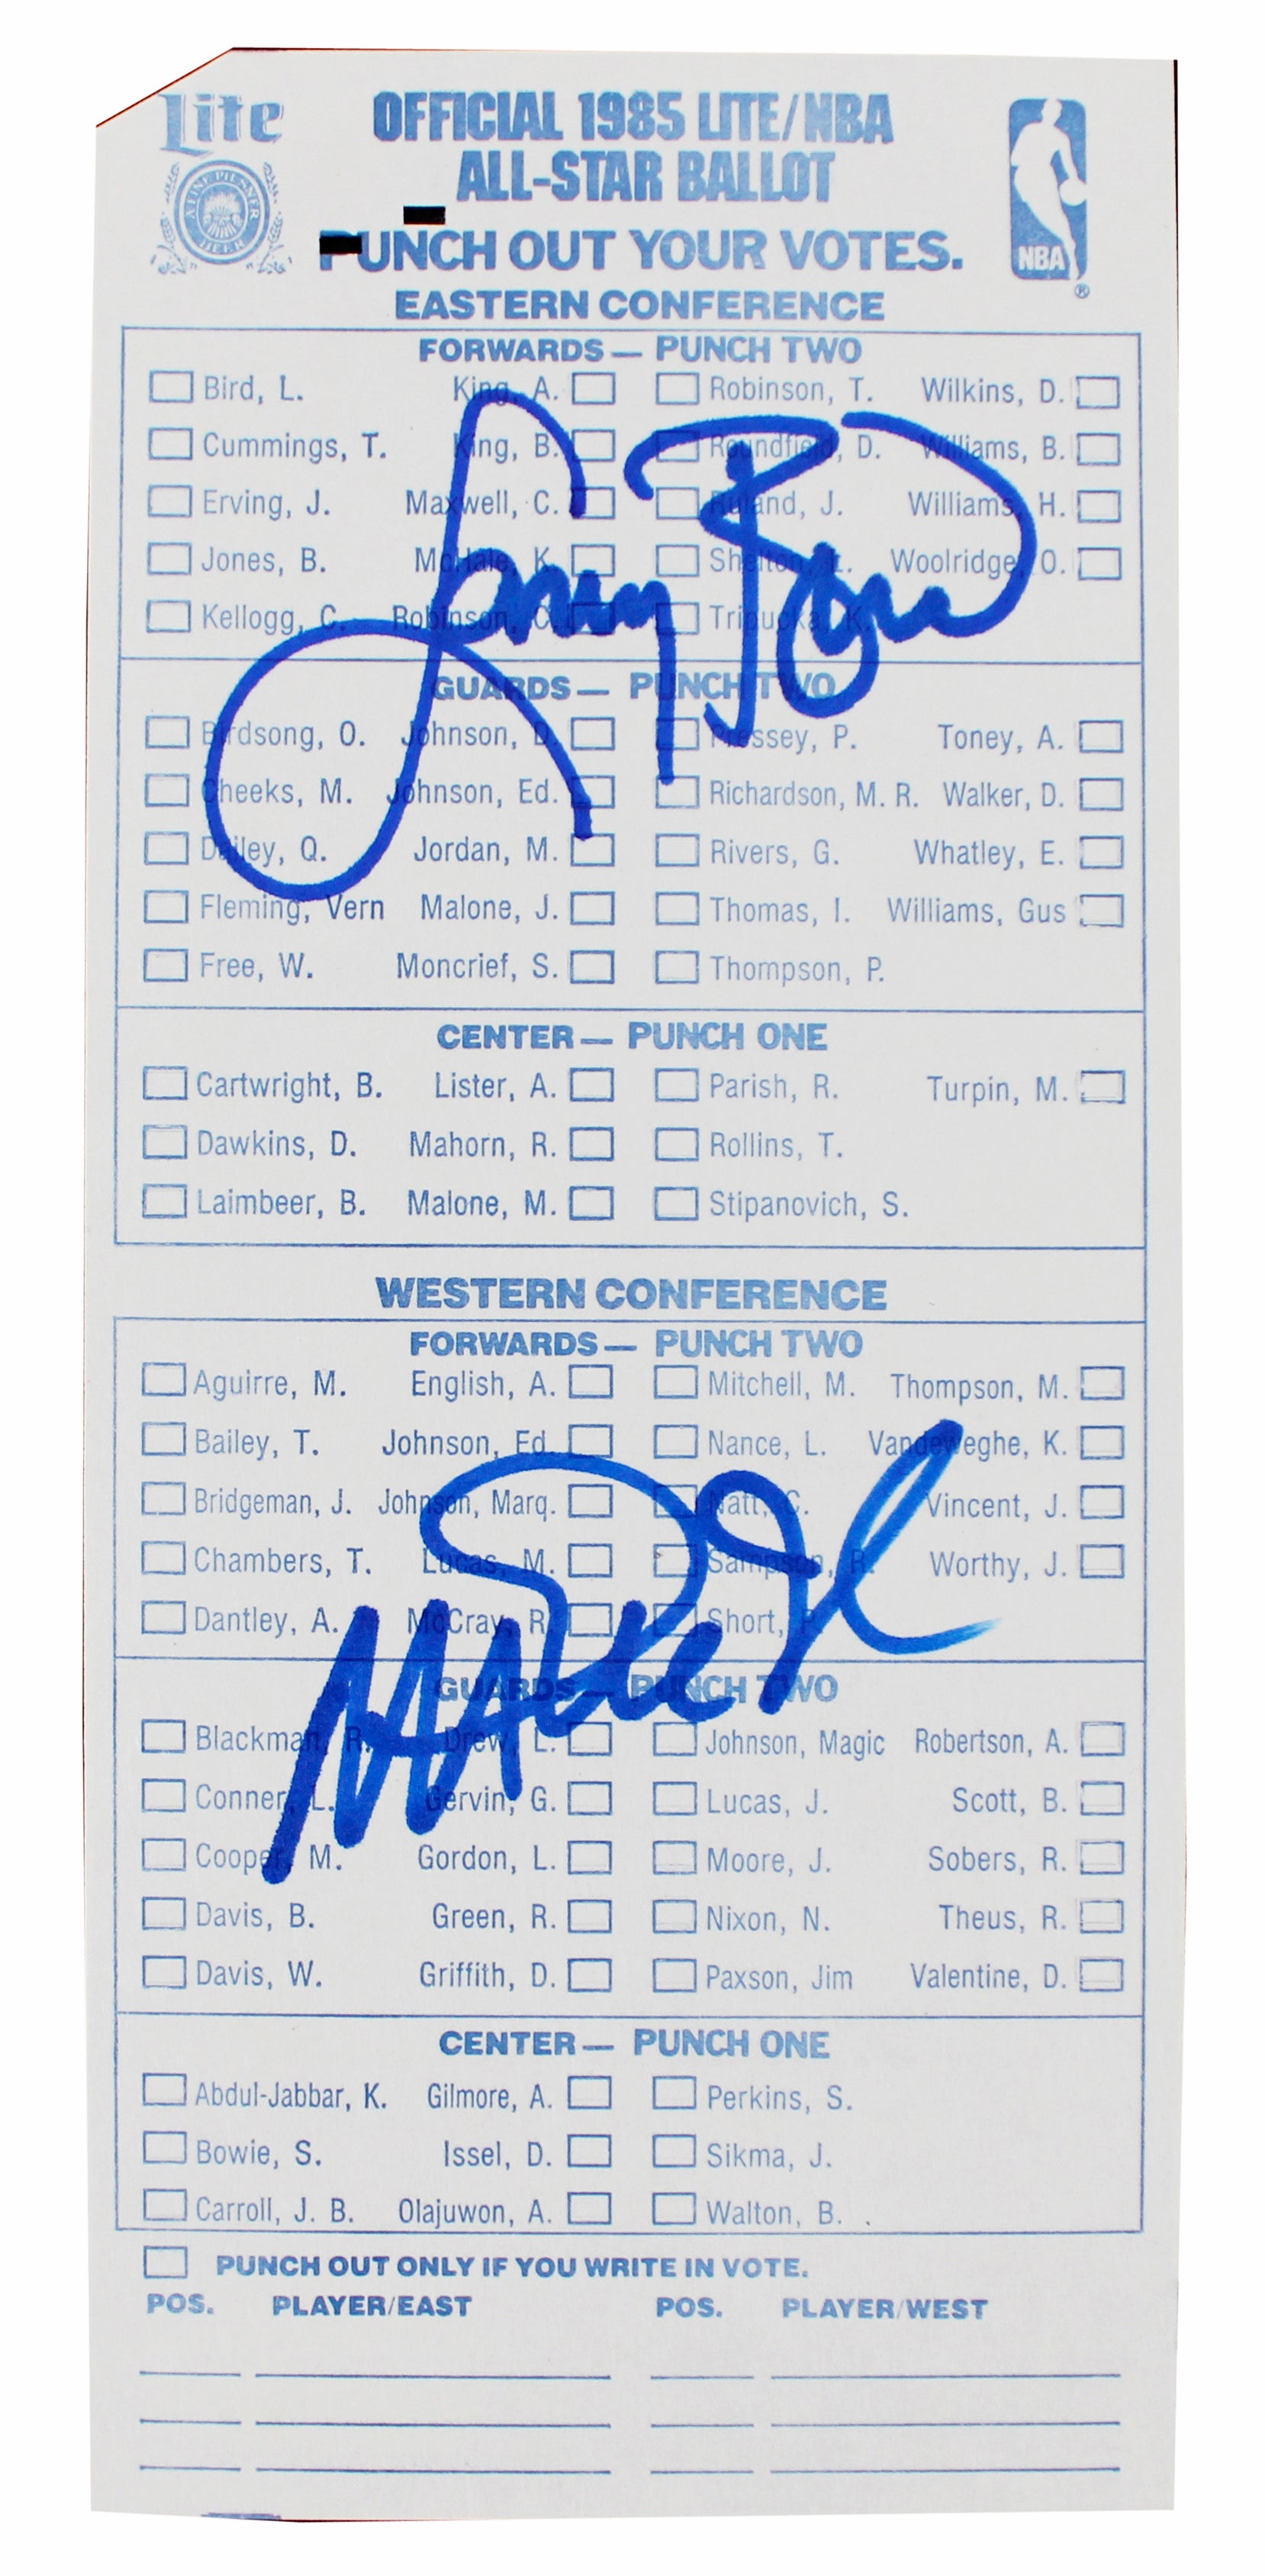 Lite
A FINE PILSNER BEER
OFFICIAL 1985 LITE/NBA
ALL-STAR BALLOT
PUNCH OUT YOUR VOTES.
NBA ®
EASTERN CONFERENCE
FORWARDS — PUNCH TWO
Bird, L. King, A. Robinson, T. Wilkins, D.
Cummings, T. King, B. Roundfield, D. Williams, B.
Erving, J. Maxwell, C. Ruland, J. Williams, H.
Jones, B. McHale, K. Shelton, L. Woolridge, O.
Kellogg, C. Robinson, C. Tripucka, K.
Larry Bird
GUARDS — PUNCH TWO
Birdsong, O. Johnson, D. Pressey, P. Toney, A.
Cheeks, M. Johnson, Ed. Richardson, M. R. Walker, D.
Dailey, Q. Jordan, M. Rivers, G. Whatley, E.
Fleming, Vern Malone, J. Thomas, I. Williams, Gus
Free, W. Moncrief, S. Thompson, P.
CENTER — PUNCH ONE
Cartwright, B. Lister, A. Parish, R. Turpin, M.
Dawkins, D. Mahorn, R. Rollins, T.
Laimbeer, B. Malone, M. Stipanovich, S.
WESTERN CONFERENCE
FORWARDS — PUNCH TWO
Aguirre, M. English, A. Mitchell, M. Thompson, M.
Bailey, T. Johnson, Ed. Nance, L. Vandeweghe, K.
Bridgeman, J. Johnson, Marq. Natt, C. Vincent, J.
Chambers, T. Lucas, M. Sampson, R. Worthy, J.
Dantley, A. McCray, R. Short, P.
GUARDS — PUNCH TWO
Blackman, R. Drew, L. Johnson, Magic Robertson, A.
Conner, L. Gervin, G. Lucas, J. Scott, B.
Cooper, M. Gordon, L. Moore, J. Sobers, R.
Davis, B. Green, R. Nixon, N. Theus, R.
Davis, W. Griffith, D. Paxson, Jim Valentine, D.
CENTER — PUNCH ONE
Abdul-Jabbar, K. Gilmore, A. Perkins, S.
Bowie, S. Issel, D. Sikma, J.
Carroll, J. B. Olajuwon, A. Walton, B.
PUNCH OUT ONLY IF YOU WRITE IN VOTE.
POS. PLAYER/EAST POS. PLAYER/WEST